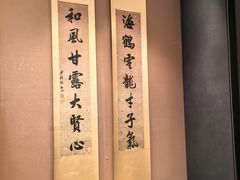 海鶴雲龍才子氣
和風甘露大賢心